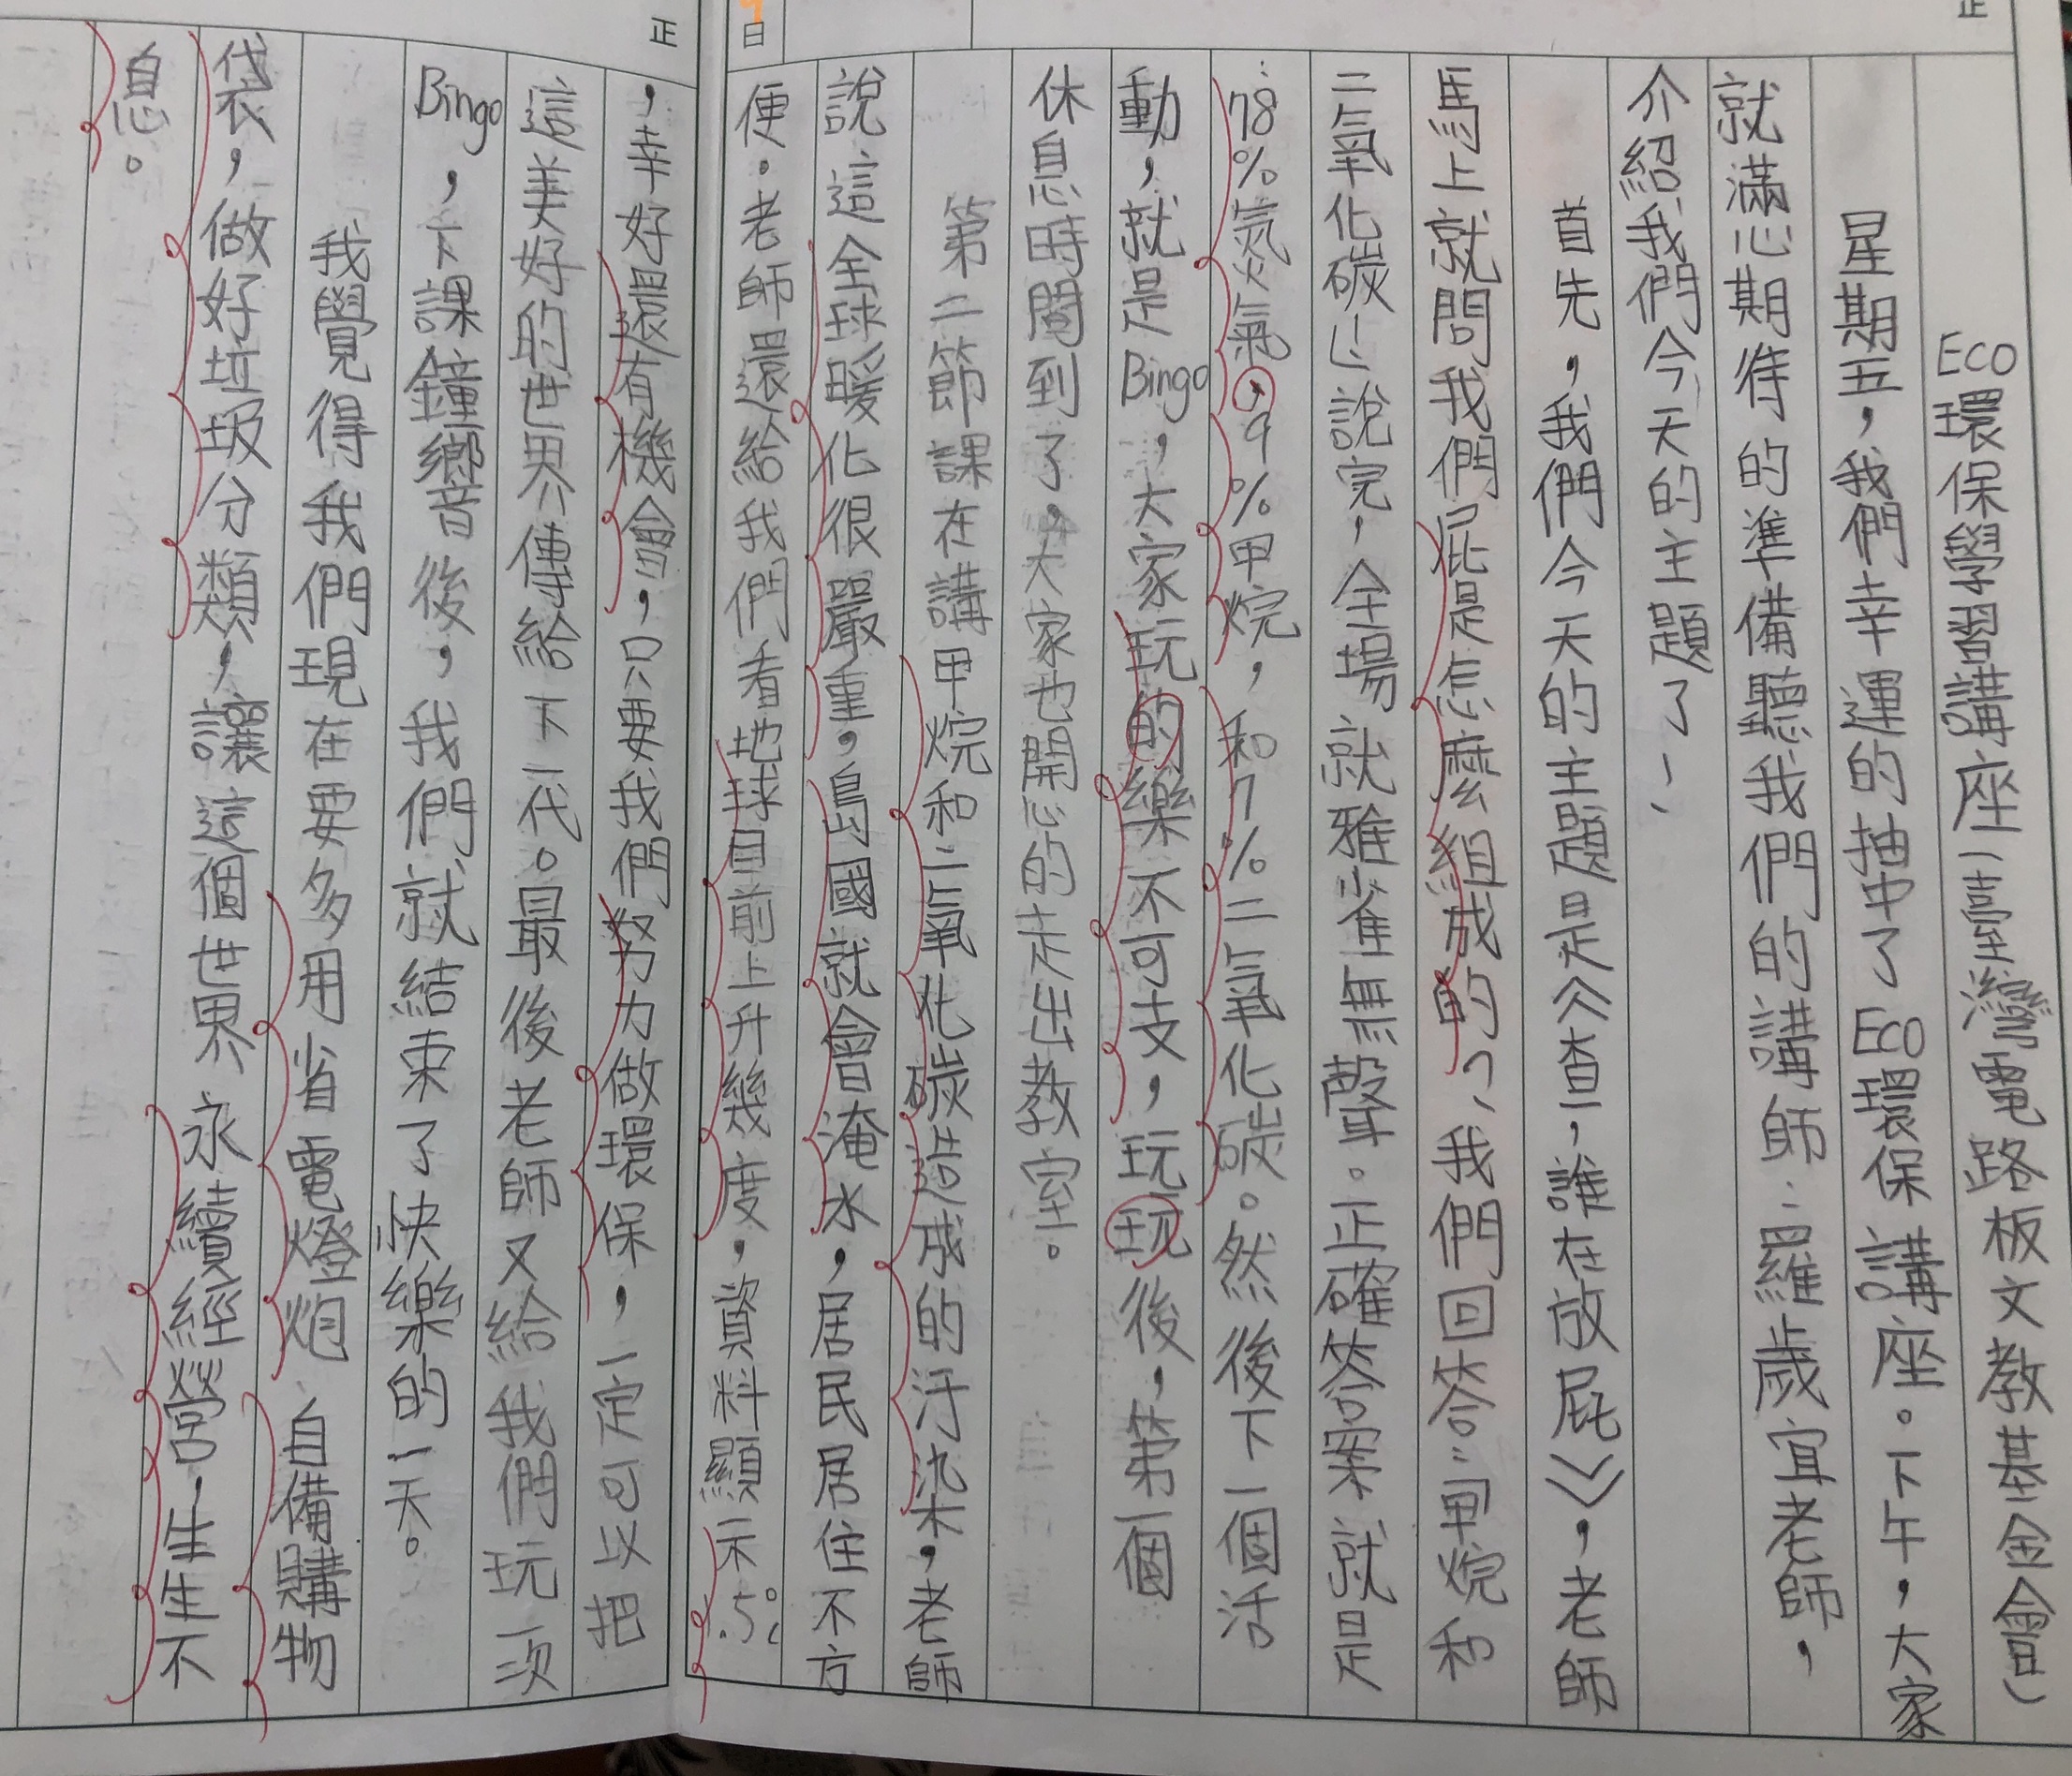 ECO環保學習講座(臺灣電路板文教基金會)
星期五,我們幸運的抽中了Eco環保講座。下午,大家
就滿心期待的準備聽我們的講師:羅歲宜老師,
介紹我們今天的主題了!
首先,我們今天的主題是《查!誰在放屁》,老師
馬上就問我們屁是怎麼組成的?我們回答:「甲烷和
二氧化碳」說完,全場就雅雀無聲。正確答案就是
:78%氮氣,9%甲烷,和7%二氧化碳。然後下一個活
動,就是Bingo,大家玩的樂不可支,玩玩後,第一個
休息時間到了,大家也開心的走出教室。
第二節課在講甲烷和二氧化碳造成的汙染,老師
說這全球暖化很嚴重,島國就會淹水,居民居住不方
便。老師還給我們看地球目前上升幾度,資料顯示.5℃
,幸好還有機會,只要我們努力做環保,一定可以把
這美好的世界傳給下一代。最後老師又給我們玩一次
Bingo,下課鐘響後,我們就結束了快樂的一天。
我覺得我們現在要多用省電燈炮、自備購物
袋,做好垃圾分類,讓這個世界永續經營,生生不
息。
正
日
正